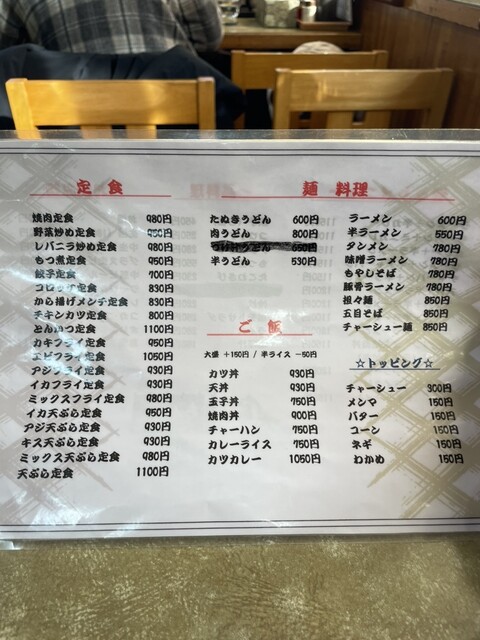 定 食
焼肉定食 980円
野菜炒め定食 950円
レバニラ炒め定食 980円
もつ煮定食 950円
餃子定食 700円
コロッケ定食 830円
から揚げメンチ定食 830円
チキンカツ定食 800円
とんかつ定食 1100円
カキフライ定食 950円
エビフライ定食 1050円
アジフライ定食 930円
イカフライ定食 930円
ミックスフライ定食 980円
イカ天ぷら定食 950円
アジ天ぷら定食 930円
キス天ぷら定食 930円
ミックス天ぷら定食 980円
天ぷら定食 1100円
麺 料理
たぬきうどん 600円
肉うどん 800円
650円
半うどん 530円
ラーメン 600円
半ラーメン 550円
タンメン 780円
味噌ラーメン 780円
もやしそば 780円
豚骨ラーメン 780円
担々麺 850円
五目そば 850円
チャーシュー麺 850円
ご 飯
大盛 +150円 / 半ライス -50円
カツ丼 930円
天丼 930円
玉子丼 750円
焼肉丼 900円
チャーハン 750円
カレーライス 750円
カツカレー 1050円
☆トッピング☆
チャーシュー 300円
メンマ 150円
バター 150円
コーン 150円
ネギ 150円
わかめ 150円